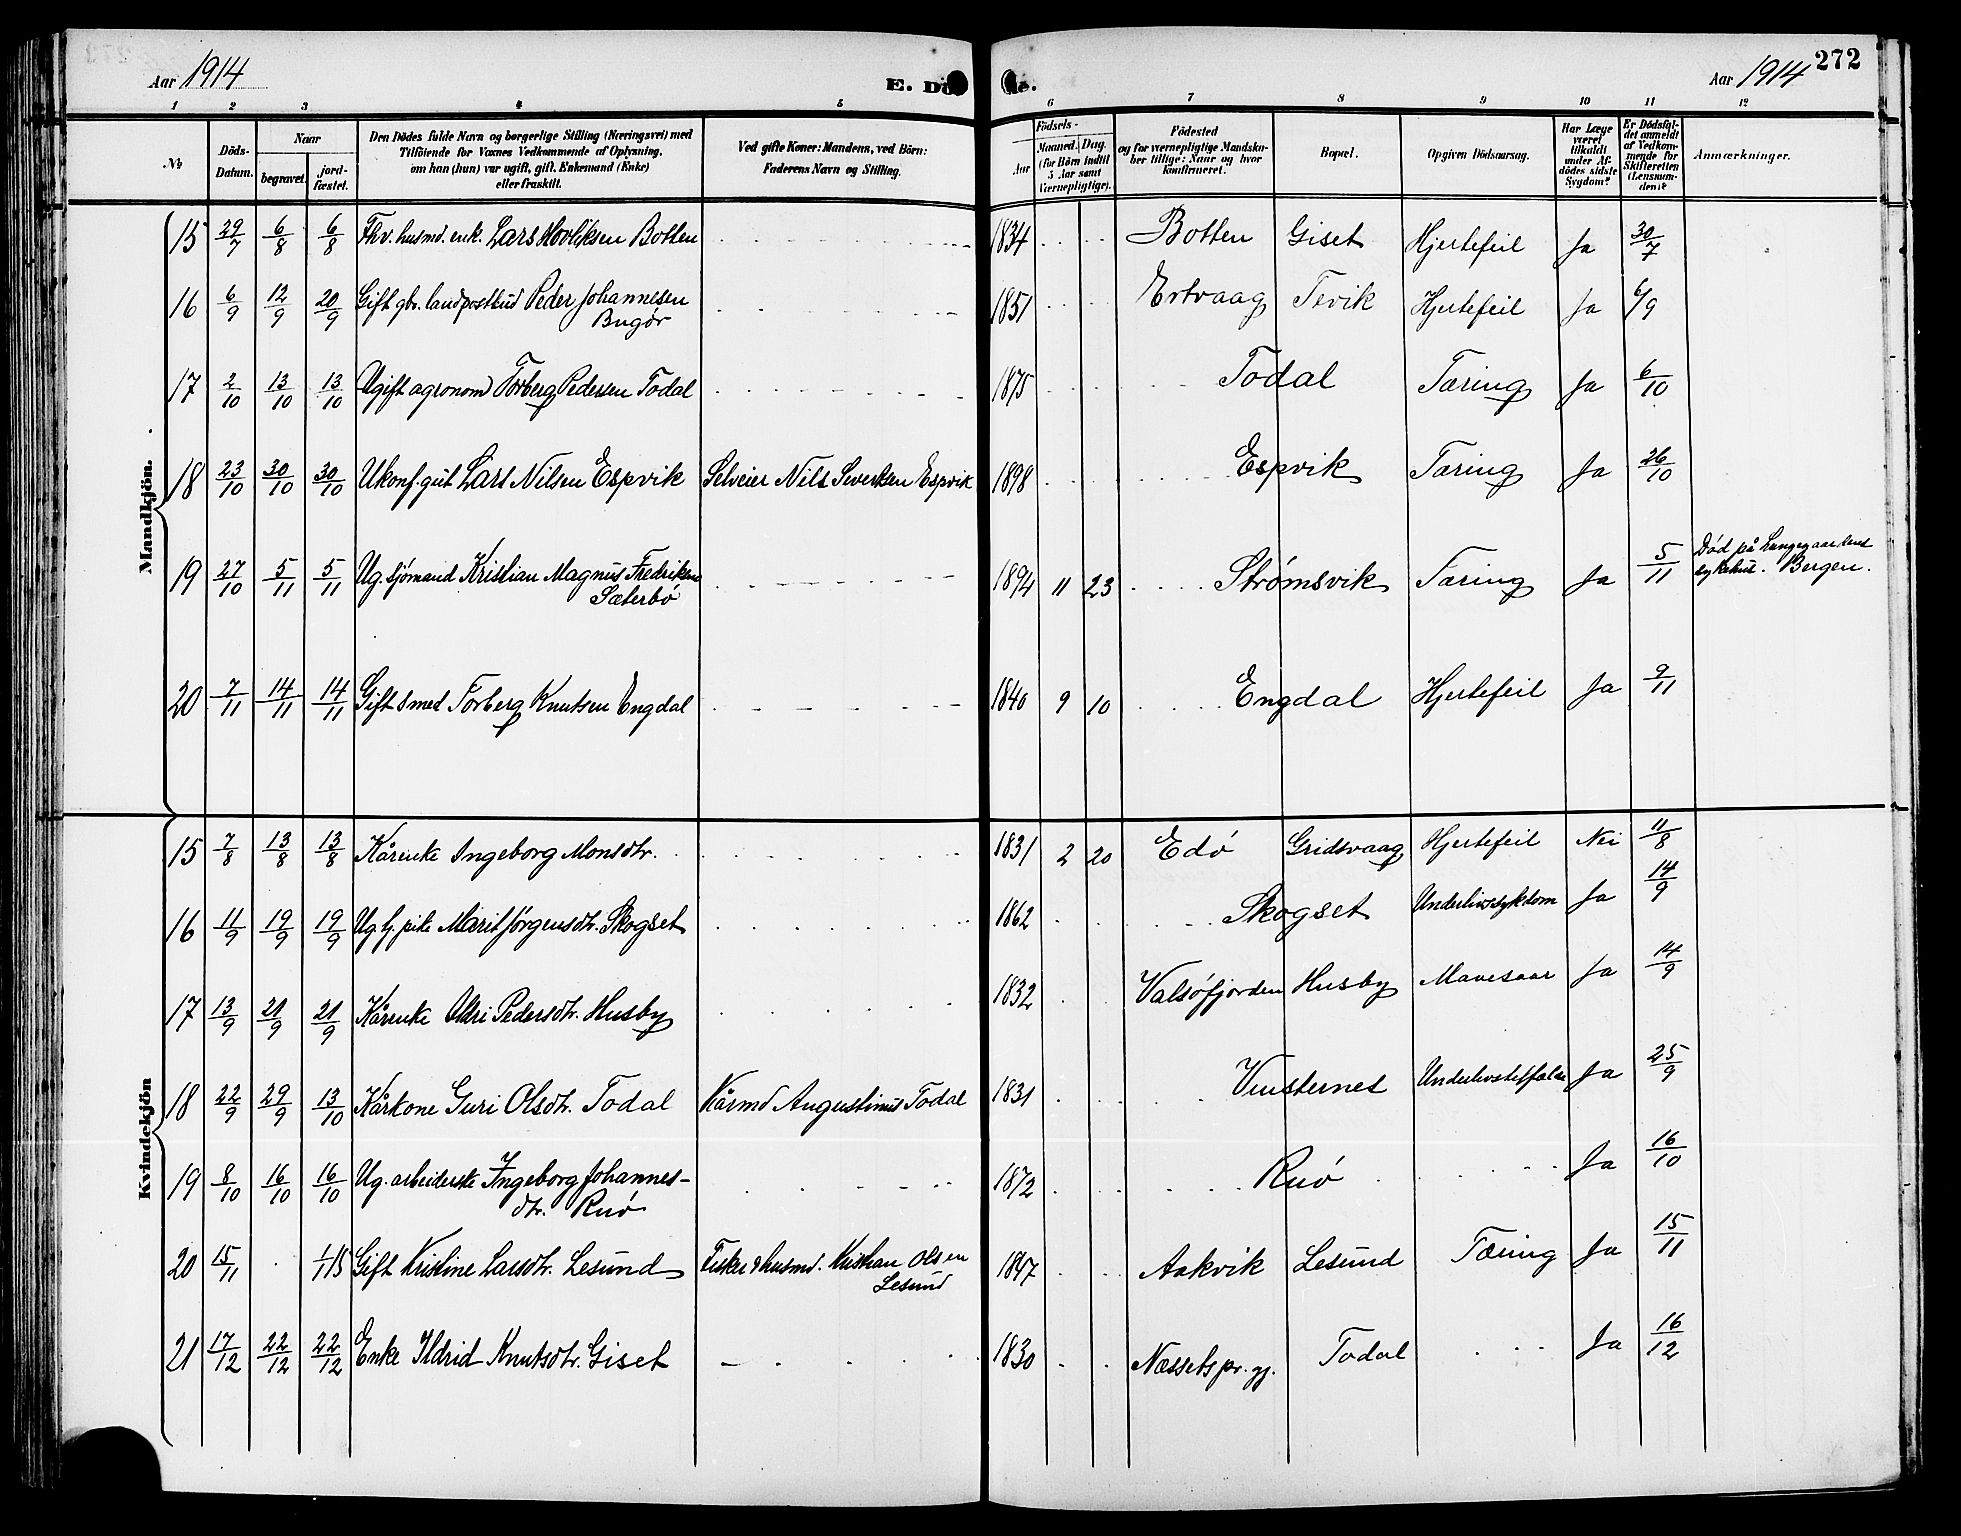 Aar 1914
E. Dö de.
Aar 1914 272
1 2 3 4 5 6 7 8 9 10 11 12
No
Döds-Datum.
Naar
begravet.
jord-fæstet.
Den Dödes fulde Navn og borgerlige Stilling (Næringsvei) med
Tilföiende for Voxnes Vedkommende af Oplysning,
om han (hun) var ugift, gift, Enkemand (Enke)
eller fraskilt.
Ved gifte Koner: Mandens, ved Börn:
Faderens Navn og Stilling.
Födsels-
Aar
Maaned. Dag.
(for Börn indtil
5 Aar samt
Værnepligtige).
Födested
og for værnepligtige Mandska-
ber tillige: Naar og hvor
konfirmeret.
Bopæl.
Opgiven Dödsaarsag.
Har Læge
været
tilkaldt
under Af-
dödes sidste
Sygdom?
Er Dödsfal-
det anmeldt
af Vedkom-
mende for
Skifteretten
(Lensman-
den)?
Anmærkninger.
Mandkjön.
15 29/7 6/8 6/8 Fhv. husmd. enk. Lars Botten 1834 Botten Giset Hjertefeil Ja 30/7
16 6/9 12/9 20/9 Gift gbr. landpostbud Peder Johannesen 1851 Ertvaag Tevik Hjertefeil Ja 6/9
Bugør
17 2/10 13/10 13/10 Ugift agronom Torberg Pedersen Todal 1875 Todal Tæring Ja 6/10
18 23/10 30/10 30/10 Ukonf. gut Lars Nilsen Espvik Selveier Nils Sivertsen Espvik 1898 Espvik Tæring Ja 26/10
19 27/10 5/11 5/11 Ug. sjömand Kristian Magnus Fredriksen 1894 11 23 Strømsvik Tæring Ja 5/11 Død på Lungegaardens
Sæterbö sykehus. Bergen.
20 7/11 14/11 14/11 Gift smed Torberg Knutsen Engdal 1840 9 10 Engdal Hjertefeil Ja 9/11
Kvindekjön
15 7/8 13/8 13/8 Kårenke Ingeborg Monsdtr. 1831 2 20 Edö Gridsvaag Hjertefeil Nei 11/8
16 11/9 19/9 19/9 Ug. tj. pike Marit Jörgensdtr. Skogset 1862 Skogset Underlivssykdom Ja 14/9
17 13/9 21/9 21/9 Kårenke Pedersdtr. Husby 1832 Valsöfjorden Husby Mavesaar Ja 14/9
18 22/9 29/9 13/10 Kårkone Guri Olsdtr. Todal Kårmd Augustinus Todal 1831 Vinsternes Ja 25/9
19 8/10 16/10 16/10 Ug. arbeiderske Ingeborg Johannes- 1872 Ruö Ja 16/10
dtr. Ruö
20 15/11 1/115 Gift Kristine Larsdtr. Lesund Fisker & husmd. Kristian Olsen 1847 Aakvik Lesund Tæring Ja 15/11
Lesund
21 17/12 22/12 22/12 Enke Ildrid Knutsdtr. Giset 1830 Næssets pr. gj. Todal Ja 16/12